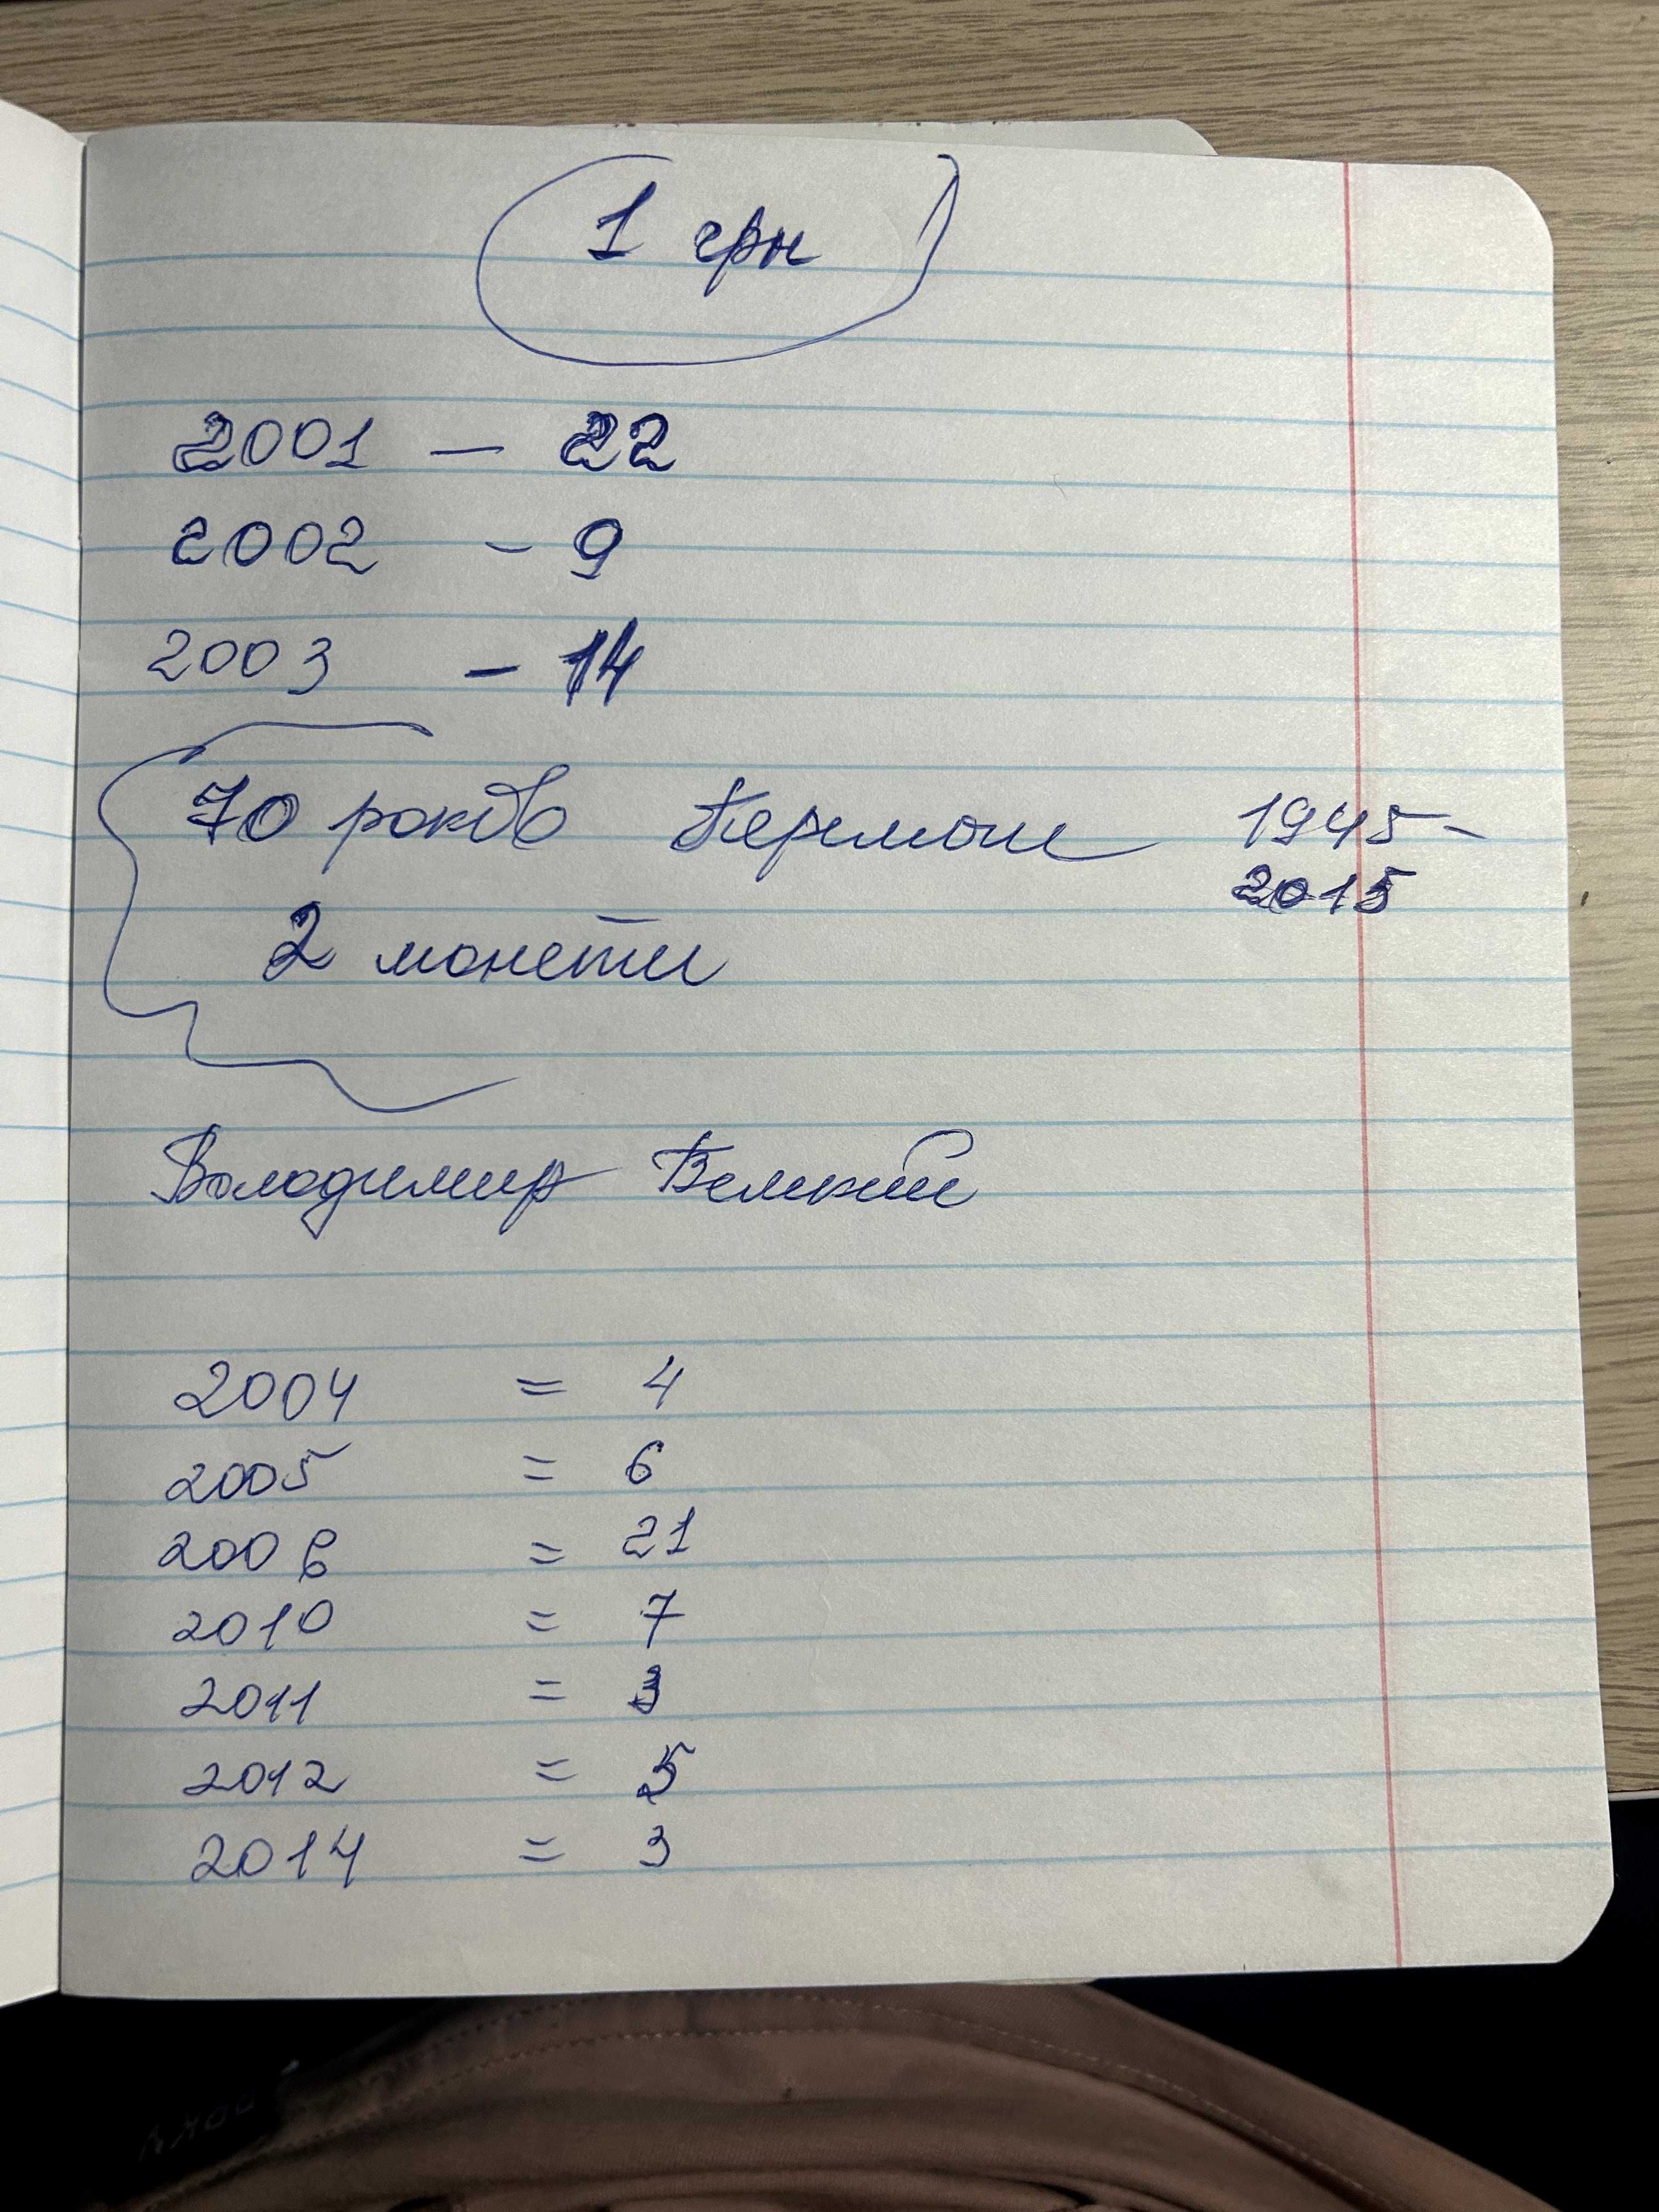 1 грн
2001 — 22
2002 - 9
2003 - 14
70 років Перемоги 1945-
2015
2 монети
Володимир Великий
2004 = 4
2005 = 6
2006 = 21
2010 = 7
2011 = 3
2012 = 5
2014 = 3